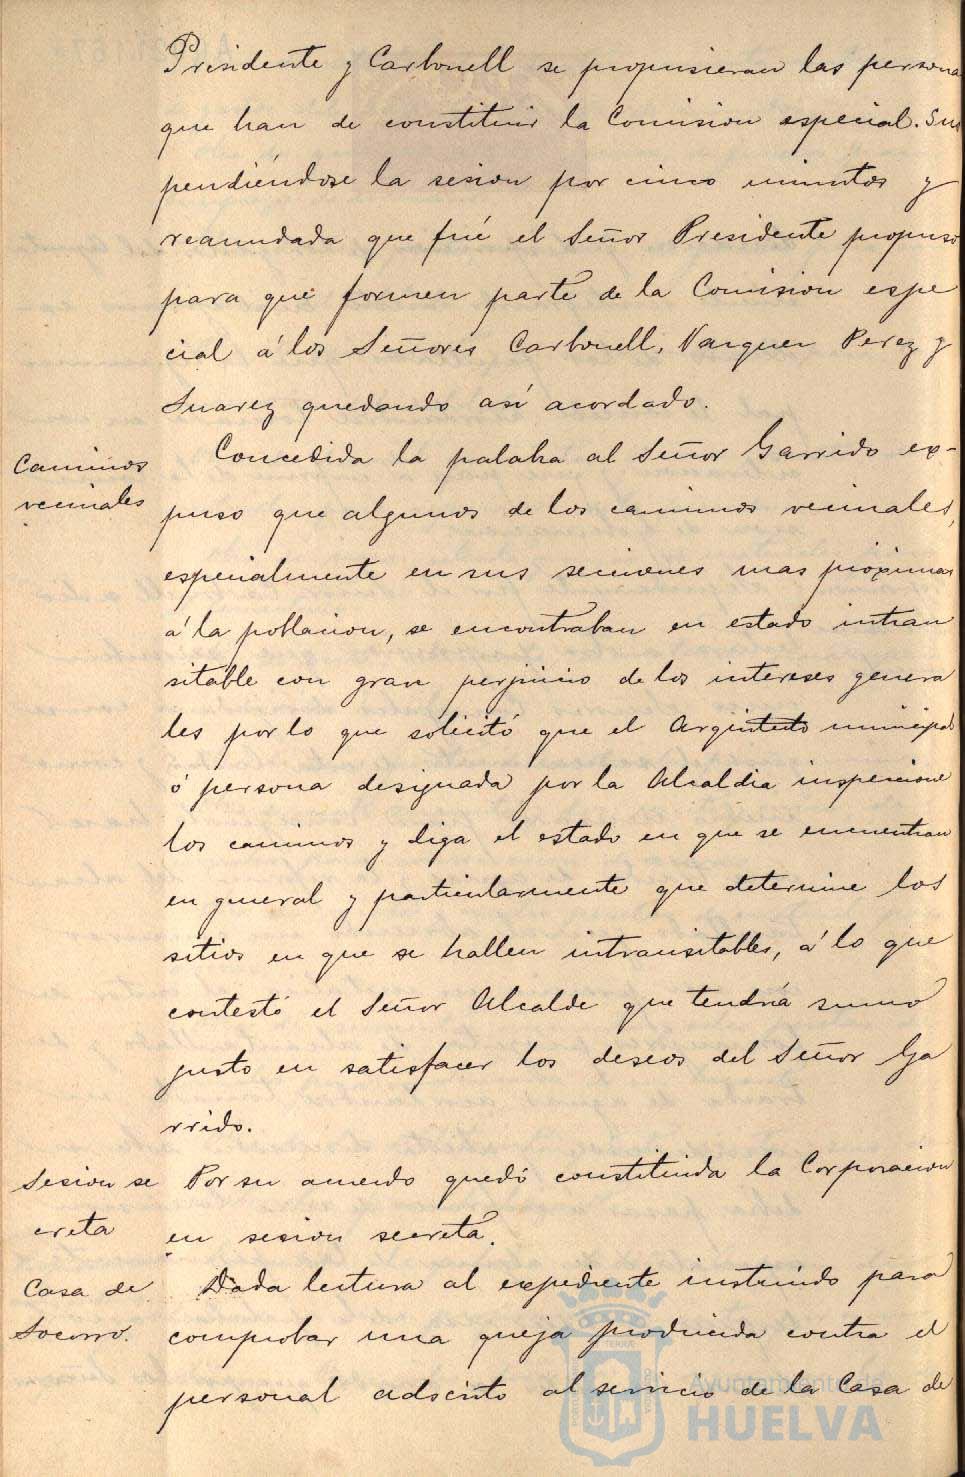 Presidente y Carbonell se propusieran las persona
que han de constituir la Comision especial. Sus
pendiéndose la sesion por cinco minutos y
reanudada que fué el Señor Presidente propuso
para que formen parte de la Comision espe
cial á los Señores Carbonell, Vazquez Perez y
Suarez quedando así acordado.
Caminos
vecinales
Concedida la palabra al Señor Garrido ex-
puso que algunos de los caminos vecinales,
especialmente en sus secciones mas próximas
á la poblacion, se encontraban en estado intran
sitable con gran perjuicio de los intereses genera
les por lo que solicitó que el Arquitecto municipal
ó persona designada por la Alcaldia inspeccione
los caminos y diga el estado en que se encuentran
en general y particularmente que determine los
sitios en que se hallen intransitables, á lo que
contestó el Señor Alcalde que tendría sumo
gusto en satisfacer los deseos del Señor Ga
rrido.
Sesion se
creta
Por su acuerdo quedó constituida la Corporacion
en sesion secreta.
Casa de
Socorro.
Dada lectura al expediente instruido para
comprobar una queja producida contra el
personal adscrito al servicio de la Casa de
Ayuntamiento de
HUELVA